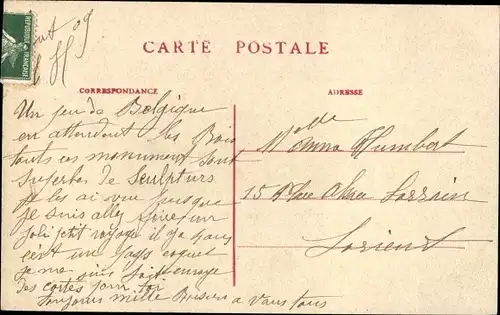 REPUBLIQUE FRANCAISE
09
CARTE POSTALE
CORRESPONDANCE
ADRESSE
Un peu de Belgique
en attendant les Bois
touts ces monument sont
superbes de sculpturs
je les ai vue puisque
je suis aller faire un
joli petit voyage il y a
c'est un pays coquet
je me suis fait
des cartes pour toi
Toujours mille Baisers a vous tous
Melle Anna Humbert
15 Place Alsace Lorraine
Lorient